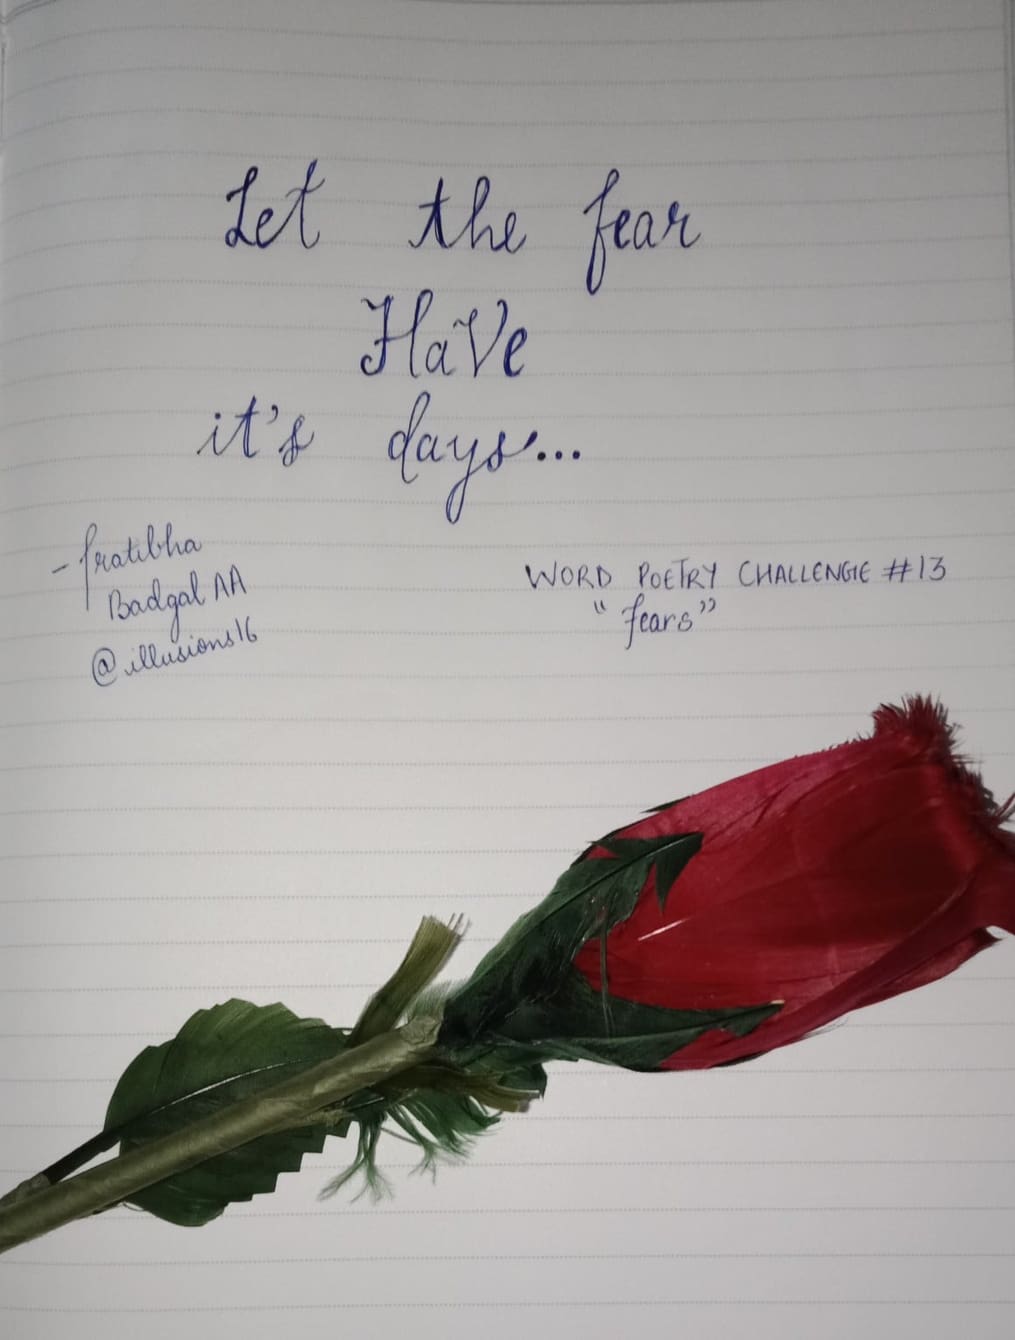 Let the fear
HaVe
it's days...
- Pratibha
Badgal AA
@illusions16
WORD POETRY CHALLENGE #13
"fears"